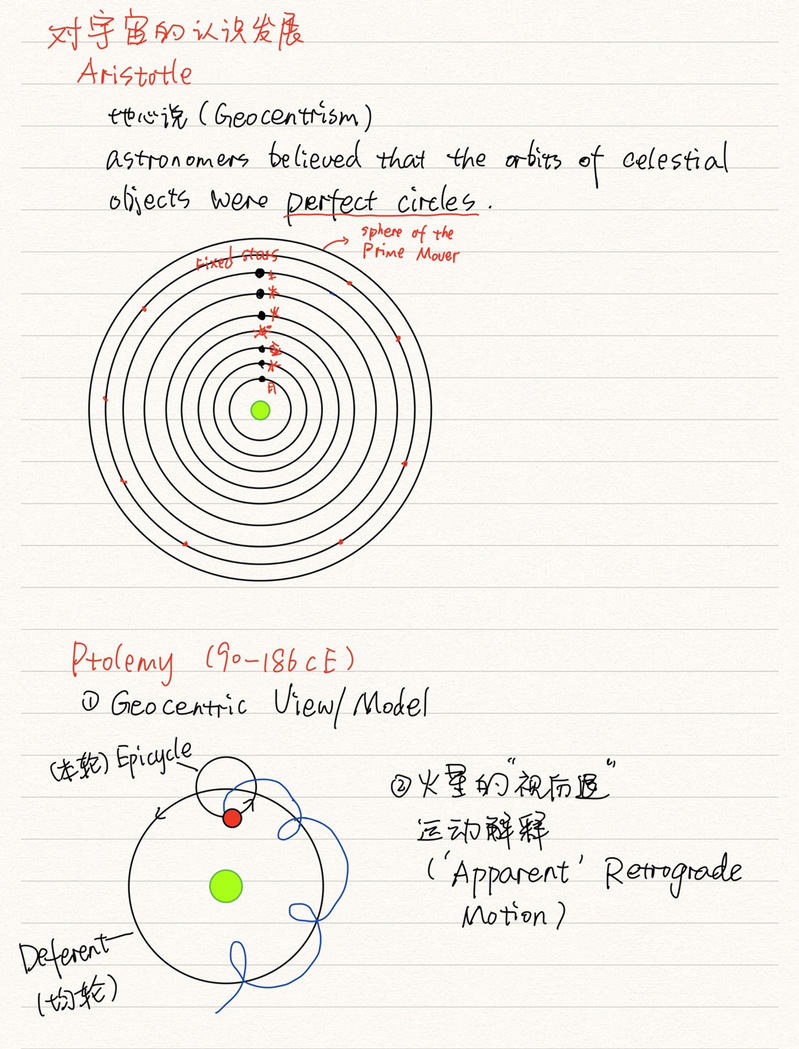 对宇宙的认识发展
Aristotle
地心说 (Geocentrism)
astronomers believed that the orbits of celestial
objects were perfect circles.
sphere of the
Prime Mover
Fixed stars
土
木
火
金
水
月
Ptolemy (90-186CE)
① Geocentric View/Model
(本轮) Epicycle
②火星的"视后退"
运动解释
('Apparent' Retrograde
Motion)
Deferent
(均轮)